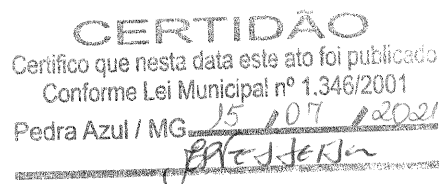 CERTIDÃO
Certifico que nesta data este ato foi publicado
Conforme Lei Municipal nº 1.346/2001
Pedra Azul / MG 15 / 07 / 2021